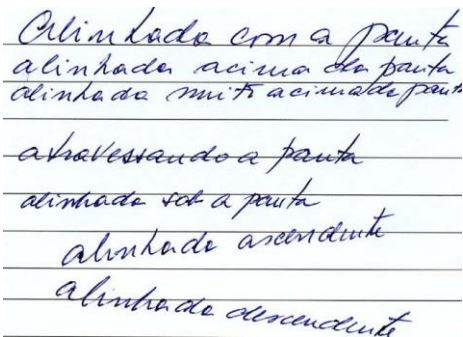 Alinhada com a pauta
alinhada acima da pauta
alinhada muito acima da pauta
atravessando a pauta
alinhada sob a pauta
alinhado ascendente
alinhado descendente